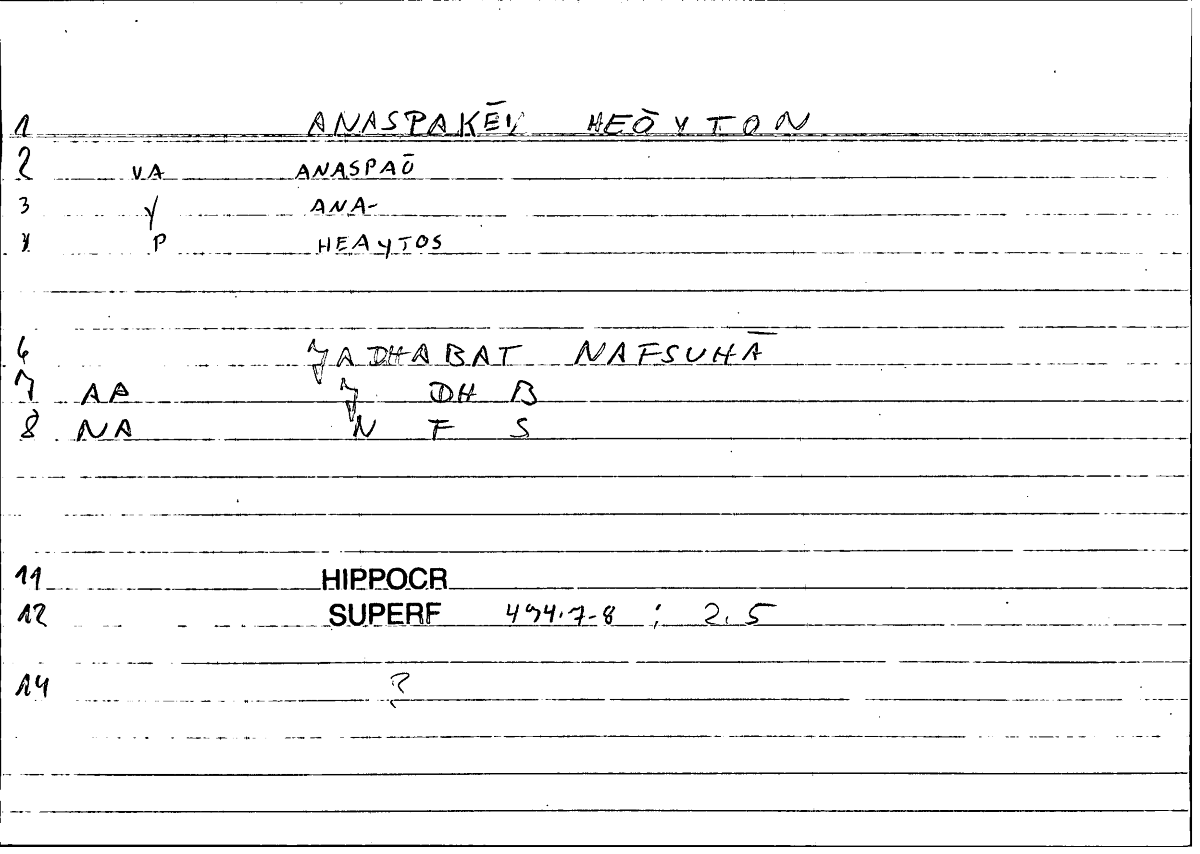 1 ANASPAKĒI HEŌYTON
2 VA ANASPAŌ
3 Y ANA-
4 P HEAYTOS
6 ADHABAT NAFSUHĀ
7 AA DH B
8 NA N F S
11 HIPPOCR
12 SUPERF 494.7-8 ; 2.5
14 ?